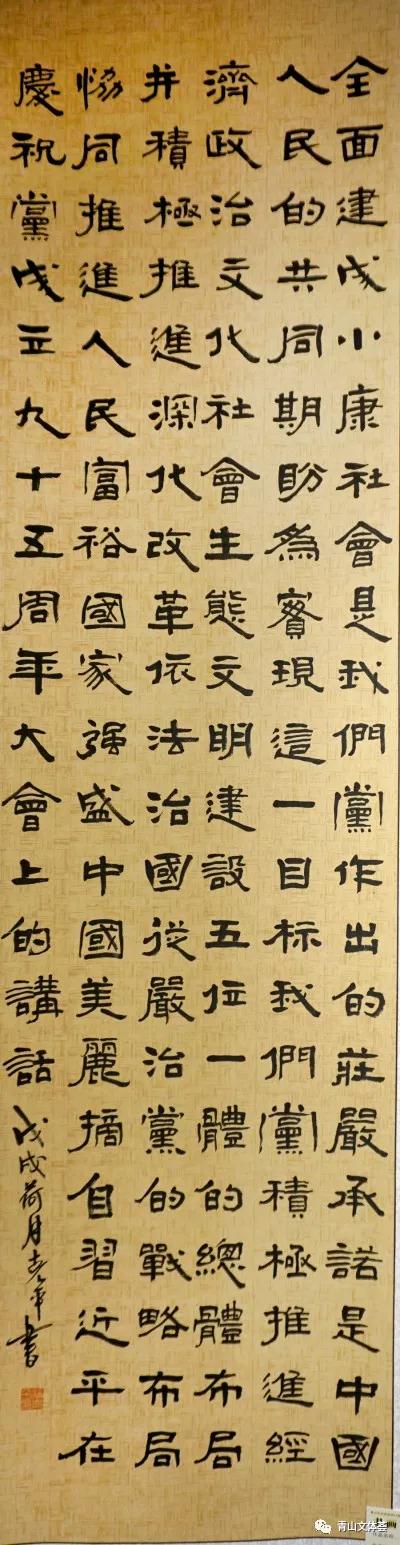 全面建成小康社會是我們黨作出的莊嚴承諾是中國
人民的共同期盼為實現這一目标我們黨積極推進經
濟政治文化社會生態文明建設五位一體的總體布局
并積極推進深化改革依法治國從嚴治黨的戰略布局
恊同推進人民富裕國家强盛中國美麗摘自習近平在
慶祝黨成立九十五周年大會上的講話
戊戌荷月書
青山文体荟